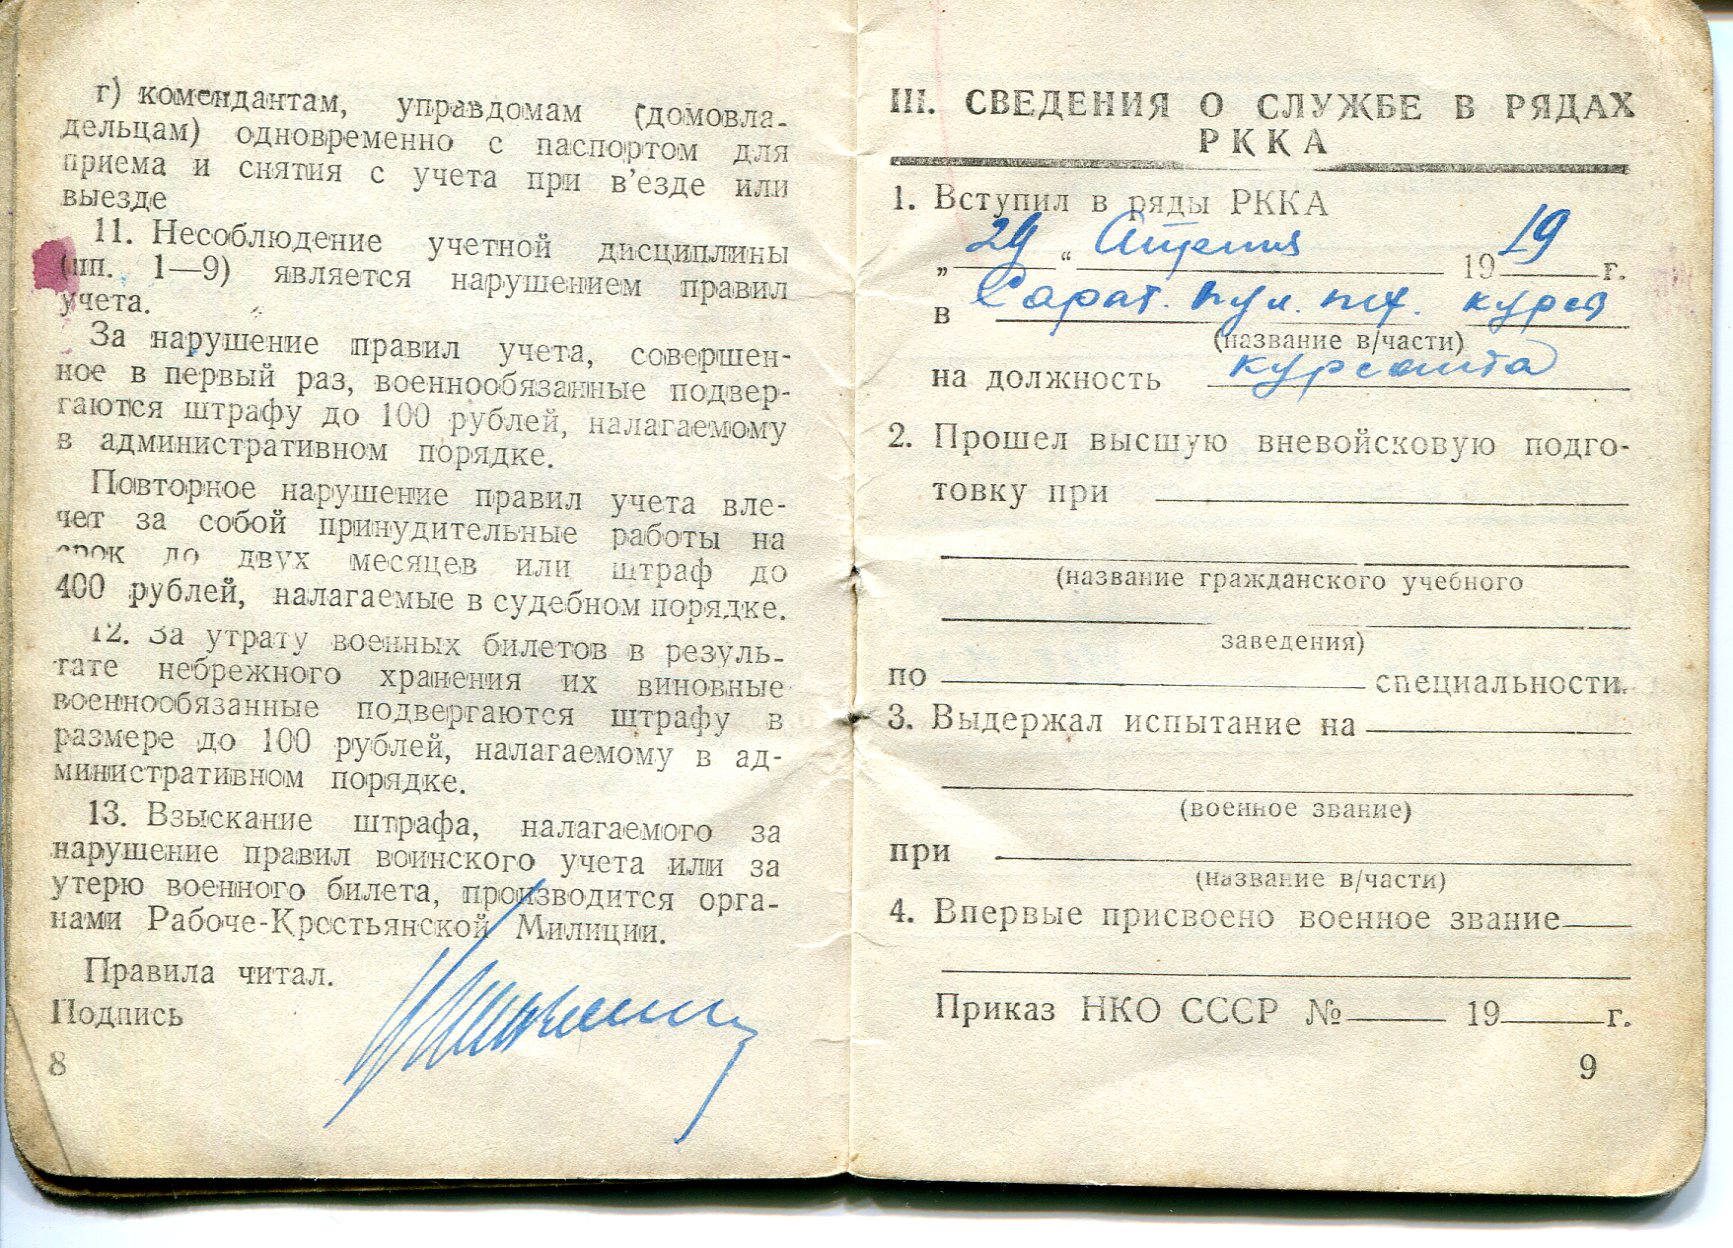 г) комендантам, управдомам (домовла-
дельцам) одновременно с паспортом для
приема и снятия с учета при в’езде или
выезде
11. Несоблюдение учетной дисциплины
(пп. 1—9) является нарушением правил
учета.
За нарушение правил учета, совершен-
ное в первый раз, военнообязанные подвер-
гаются штрафу до 100 рублей, налагаемому
в административном порядке.
Повторное нарушение правил учета вле-
чет за собой принудительные работы на
срок до двух месяцев или штраф до
400 рублей, налагаемые в судебном порядке.
12. За утрату военных билетов в резуль-
тате небрежного хранения их виновные
военнообязанные подвергаются штрафу в
размере до 100 рублей, налагаемому в ад-
министративном порядке.
13. Взыскание штрафа, налагаемого за
нарушение правил воинского учета или за
утерю военного билета, производится орга-
нами Рабоче-Крестьянской Милиции.
Правила читал.
Подпись
8
III. СВЕДЕНИЯ О СЛУЖБЕ В РЯДАХ
РККА
1. Вступил в ряды РККА
„29“ Апреля 1919 г.
в Сарат. пул. пех. курсы
(название в/части)
на должность курсанта
2. Прошел высшую вневойсковую подго-
товку при
(название гражданского учебного
заведения)
по специальности.
3. Выдержал испытание на
(военное звание)
при
(название в/части)
4. Впервые присвоено военное звание
Приказ НКО СССР № 19 г.
9